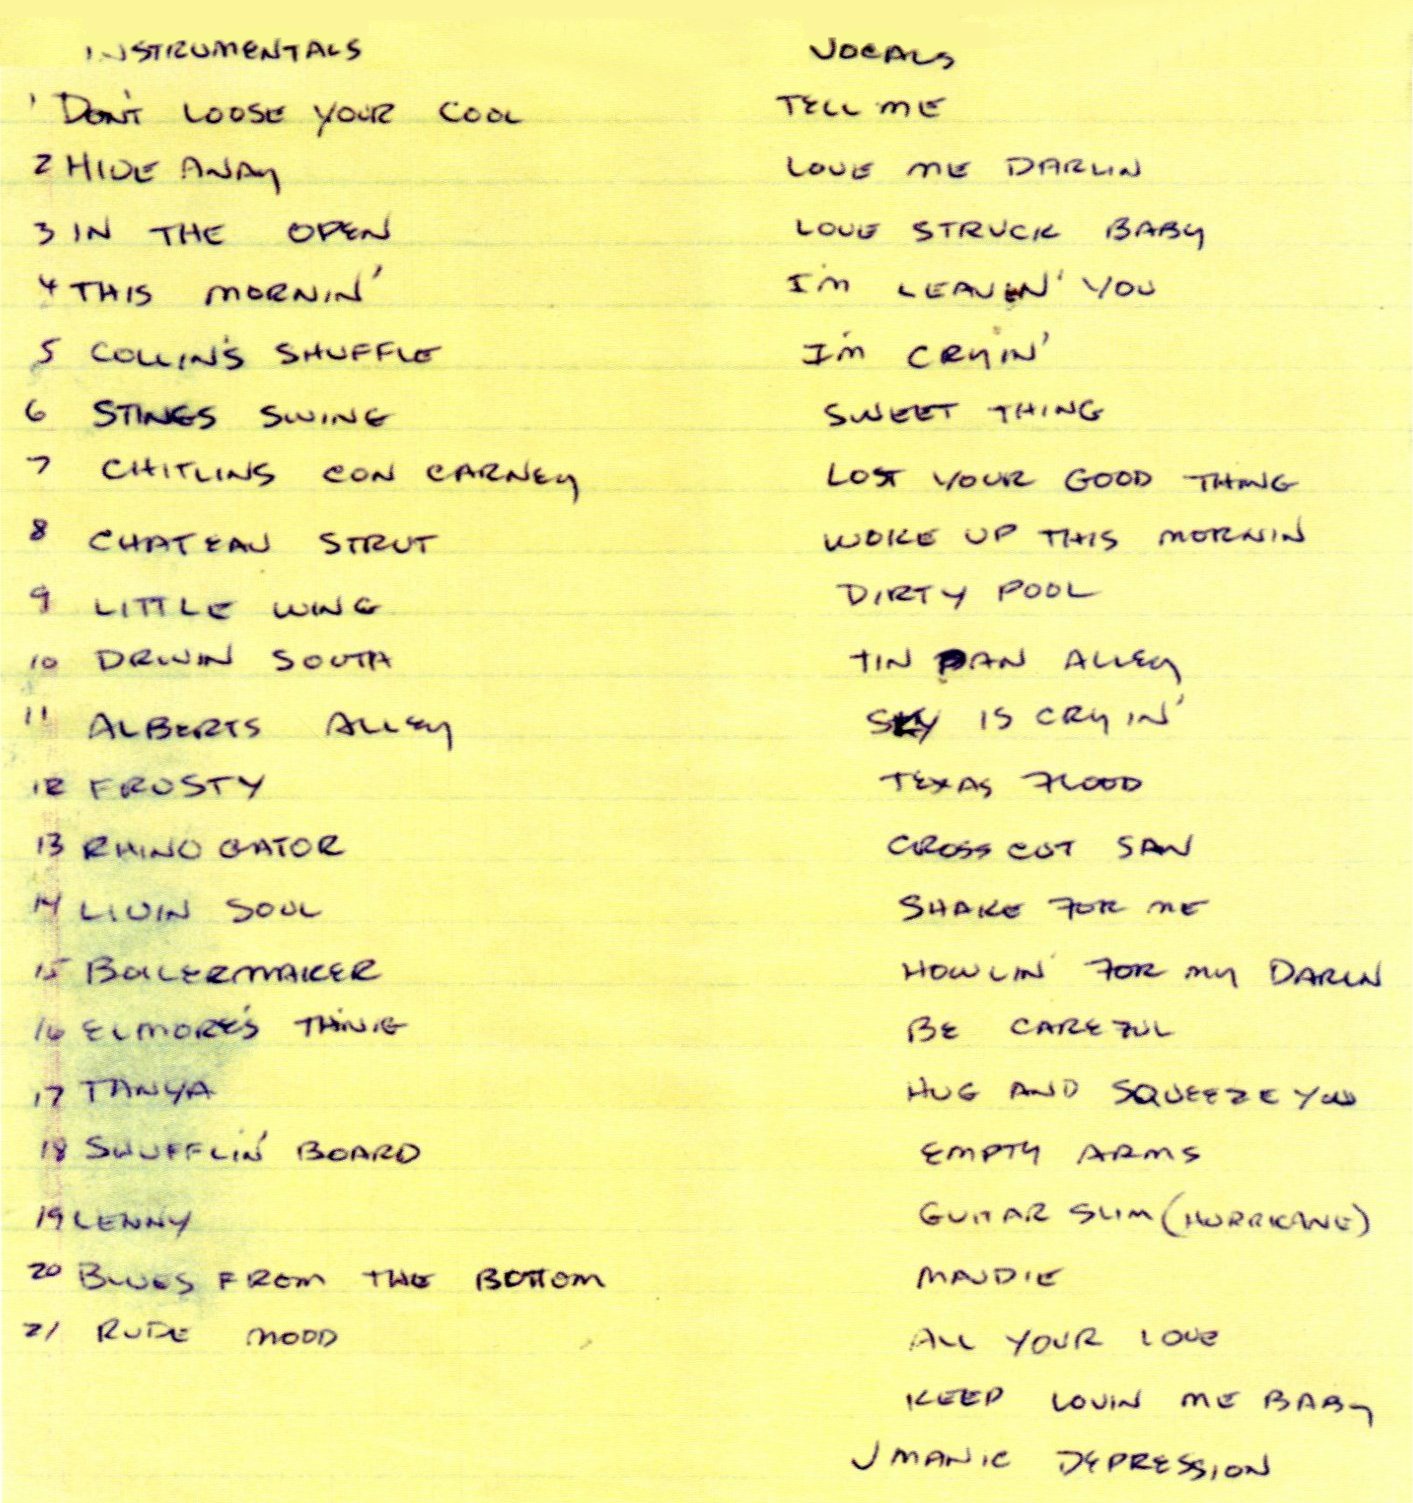 INSTRUMENTALS
1 DON'T LOOSE YOUR COOL
2 HIDE AWAY
3 IN THE OPEN
4 THIS MORNIN'
5 COLLIN'S SHUFFLE
6 STINGS SWING
7 CHITLINS CON CARNEY
8 CHATEAU STRUT
9 LITTLE WING
10 DRIVIN SOUTH
11 ALBERTS ALLEY
12 FROSTY
13 RHINO GATOR
14 LIVIN SOUL
15 BOILERMAKER
16 ELMORE'S THING
17 TANYA
18 SHUFFLIN' BOARD
19 LENNY
20 BLUES FROM THE BOTTOM
21 RUDE MOOD
VOCALS
TELL ME
LOVE ME DARLIN
LOVE STRUCK BABY
I'M LEAVIN' YOU
I'M CRYIN'
SWEET THING
LOST YOUR GOOD THING
WOKE UP THIS MORNIN
DIRTY POOL
TIN PAN ALLEY
SKY IS CRYIN'
TEXAS FLOOD
CROSS CUT SAW
SHAKE FOR ME
HOWLIN' FOR MY DARLN
BE CAREFUL
HUG AND SQUEEZE YOU
EMPTY ARMS
GUITAR SLIM (HURRICANE)
MAUDIE
ALL YOUR LOVE
KEEP LOVIN ME BABY
J MANIC DEPRESSION